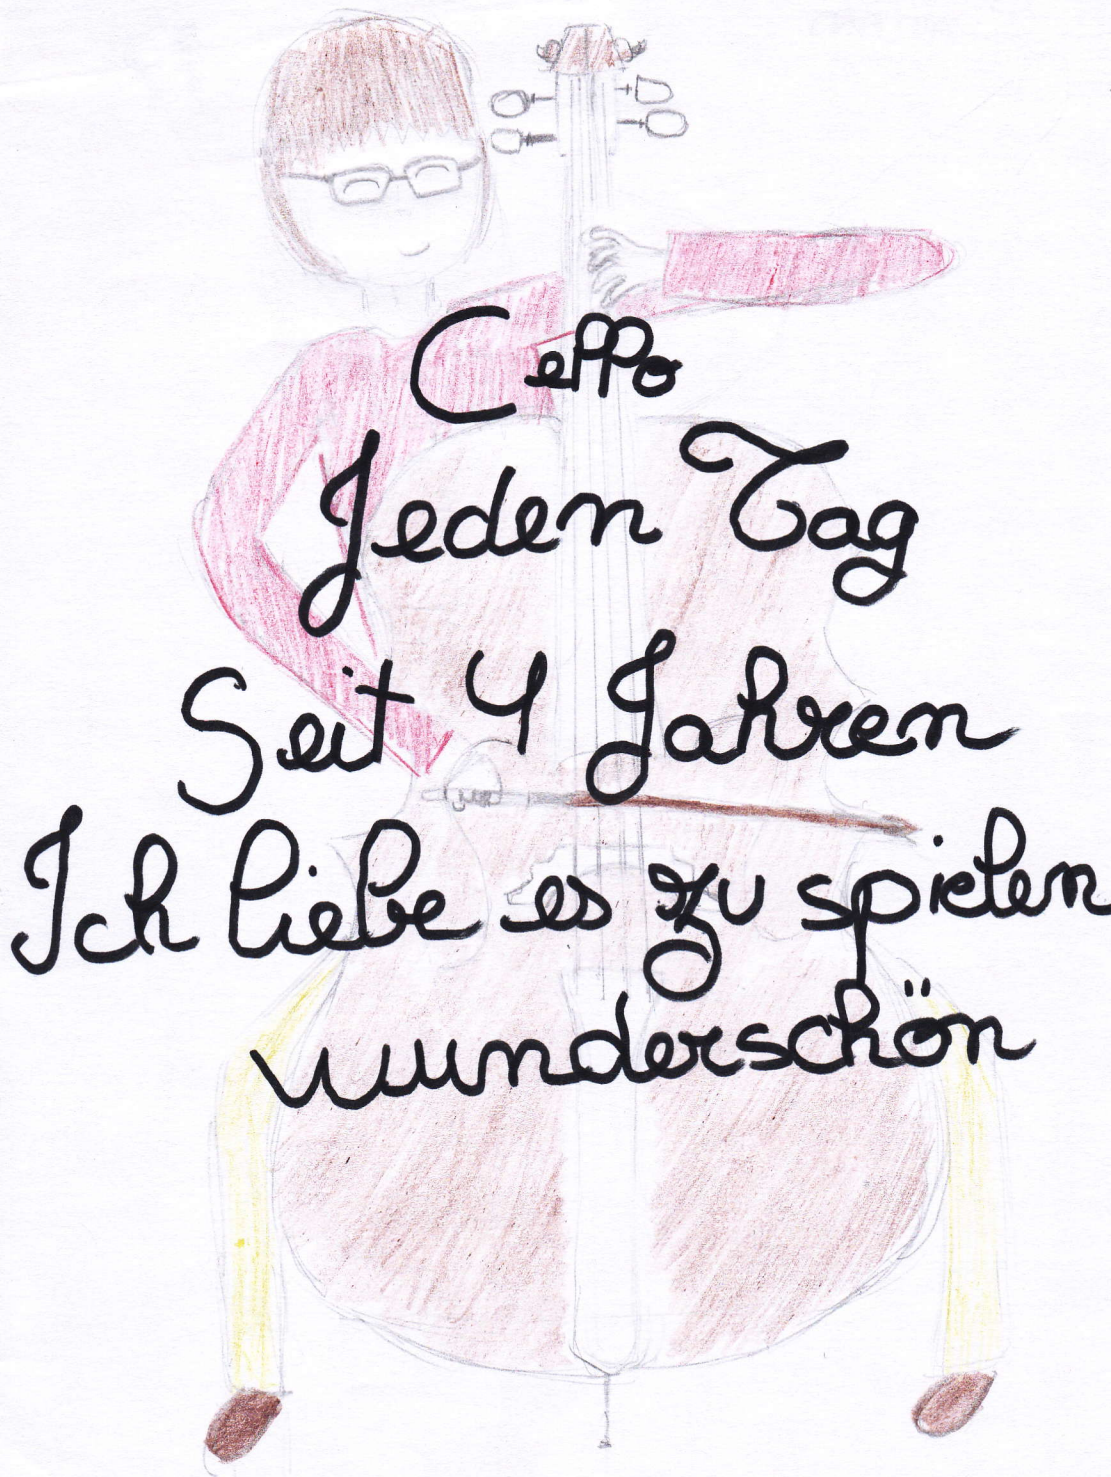 Cello
Jeden Tag
Seit 4 Jahren
Ich liebe es zu spielen
wunderschön